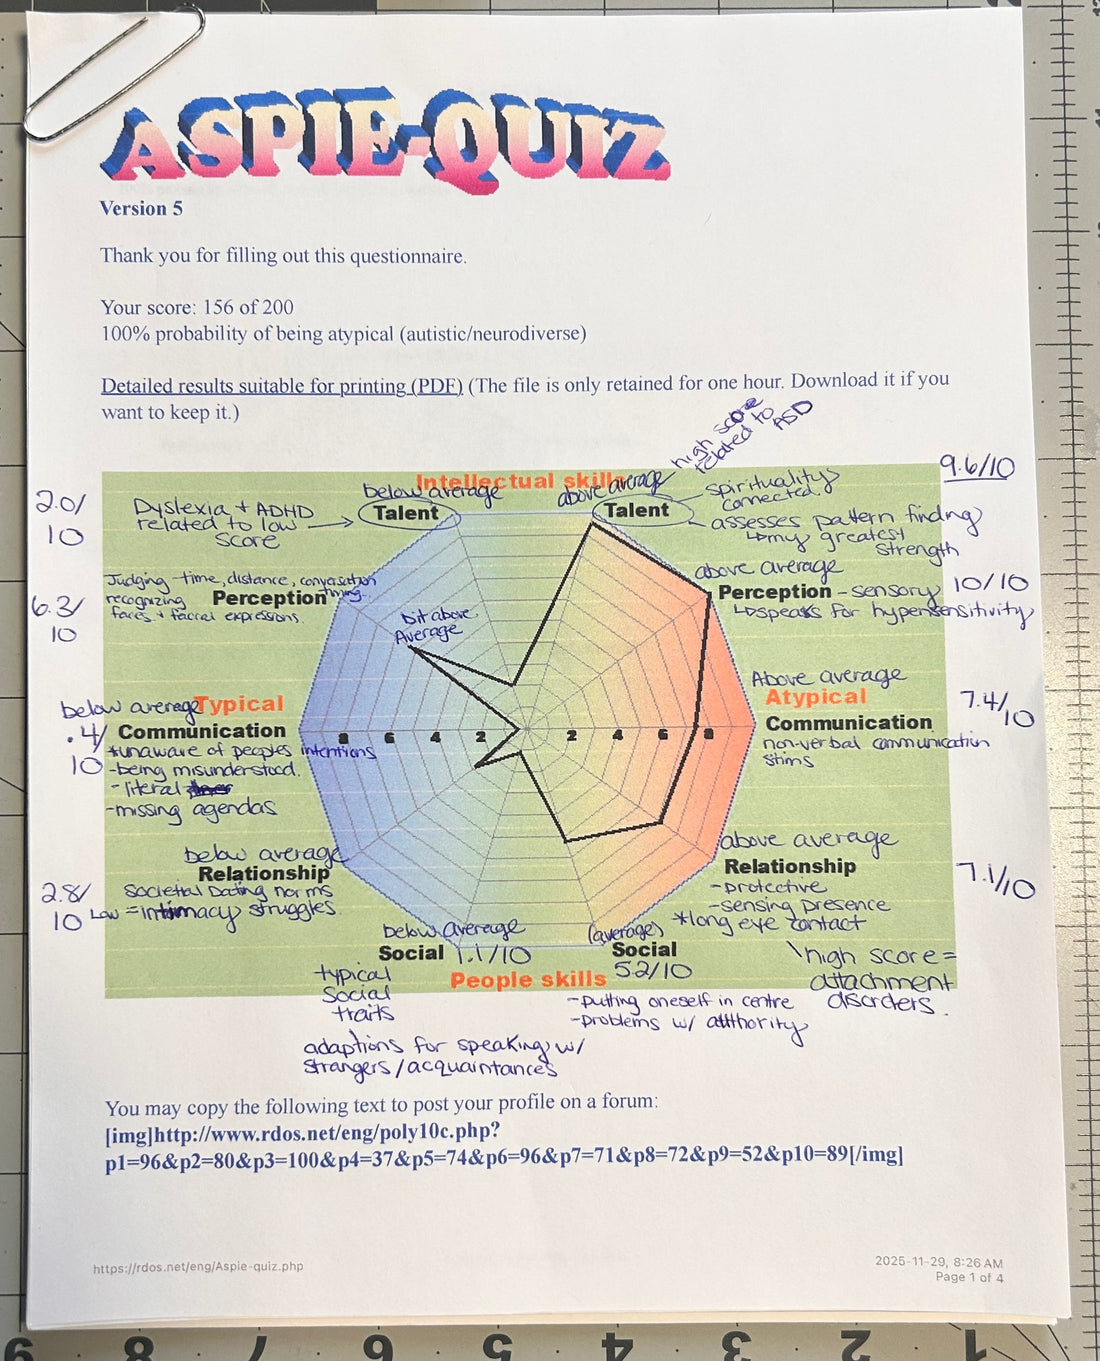 ASPIE-QUIZ
Version 5
Thank you for filling out this questionnaire.
Your score: 156 of 200
100% probability of being atypical (autistic/neurodiverse)
Detailed results suitable for printing (PDF) (The file is only retained for one hour. Download it if you
want to keep it.)
high score
related to
ASD
9.6/10
Intellectual skills
below average
above average
spirituality
connected.
2.0/
10
Dyslexia + ADHD
related to low
score
Talent
Talent
assesses pattern finding
my greatest
strength
above average
Judging - time, distance, conversation
timing.
recognizing
faces + facial expressions
6.3/
10
Perception
bit above
Average
Perception - sensory
speaks for hypersensitivity
10/10
Above average
below average
Typical
Atypical
7.4/
10
.4/
10
Communication
Communication
8 6 4 2 2 4 6 8
*unaware of peoples intentions
-being misunderstood.
-literal
-missing agendas
non-verbal communication
stims
below average
Relationship
above average
Relationship
7.1/10
2.8/
10
Societal Dating norms
Low = intimacy struggles
-protective
-sensing presence
*long eye contact
high score =
attachment
disorders.
below average
Social 1.1/10
(average)
Social
5.2/10
People skills
typical
social
traits
-putting oneself in centre
-problems w/ authority
adaptions for speaking w/
strangers/acquaintances
You may copy the following text to post your profile on a forum:
[img]http://www.rdos.net/eng/poly10c.php?
p1=96&p2=80&p3=100&p4=37&p5=74&p6=96&p7=71&p8=72&p9=52&p10=89[/img]
https://rdos.net/eng/Aspie-quiz.php
2025-11-29, 8:26 AM
Page 1 of 4
9 8 7 6 5 4 3 2 1